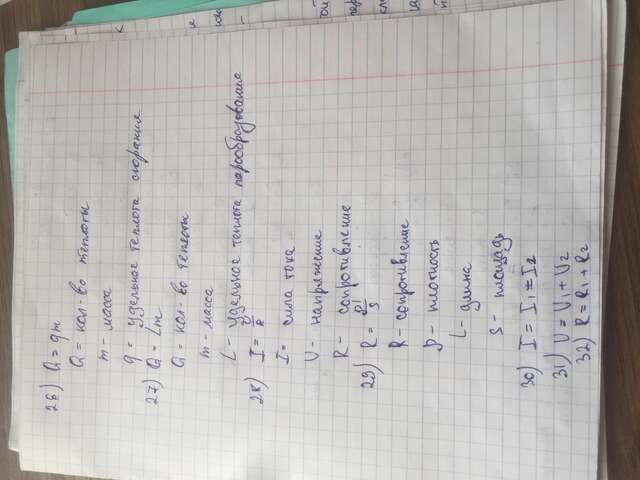 26) Q = qm
Q = кол-во теплоты
m - масса
q = удельное теплота сгорания
27) Q = Lm
Q = кол-во теплоты
m - масса
L - удельное теплота парообразование
28) I = U/R
I = сила тока
U - напряжение
R - сопротивление
29) R = ρl/S
R - сопротивление
ρ - плотность
L - длина
S - площадь
30) I = I₁ = I₂
31) U = U₁ + U₂
32) R = R₁ + R₂